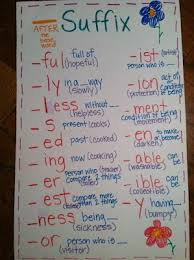 Suffix
AFTER
the base word
-ful full of (hopeful)
-ly in a way (slowly)
-less without (helpless)
-s present (cooks)
-ed past (cooked)
-ing now (cooking)
-er person who (teacher)
compare 2 things
-est compare more
-ness being (sickness)
-or person who is (visitor)
-ist
person who is
-ion act of
condition of
-ment
-en made to
-able
able
-ible (collectible)
-y having
(bumpy)